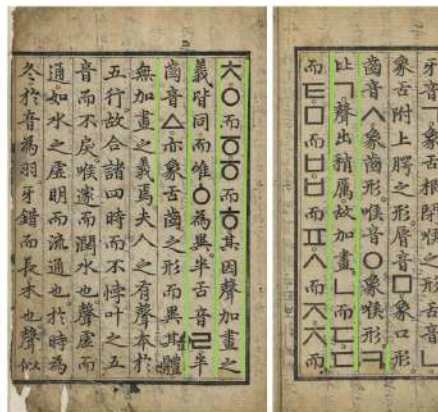 牙音ㄱ象舌根閉喉之形舌音ㄴ
象舌附上腭之形脣音ㅁ象口形
齒音ㅅ象齒形喉音ㅇ象喉形ㅋ
比ㄱ聲出稍厲故加畫ㄴ而ㄷㄷ
而ㅌㅁ而ㅂㅂ而ㅍㅅ而ㅈㅈ而
ㅊㅇ而ㆆㆆ而ㅎ其因聲加畫之
義皆同而唯ㆁ為異半舌音ㄹ半
齒音ㅿ亦象舌齒之形而異其體
無加畫之義焉夫人之有聲本於
五行故合諸四時而不悖叶之五
音而不戾喉邃而潤水也聲虛而
通如水之虛明而流通也於時為
冬於音為羽牙錯而長木也聲似